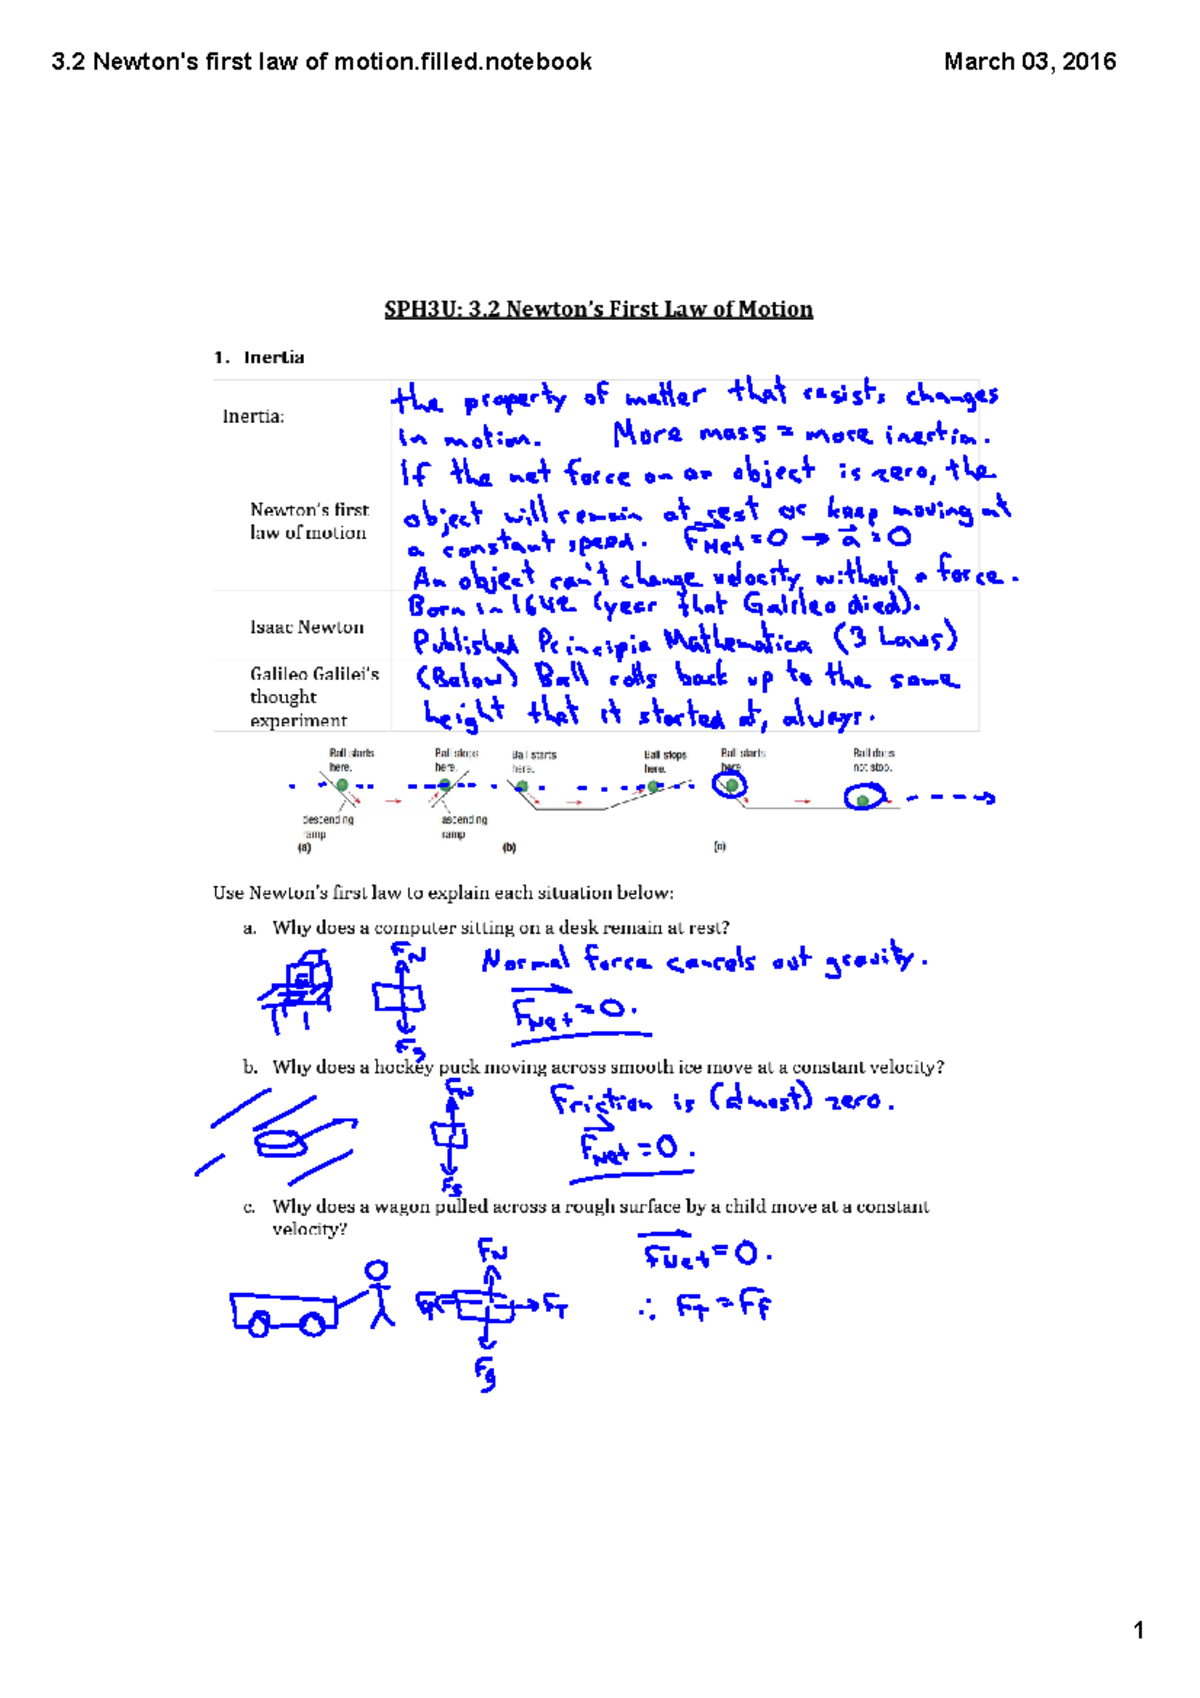 3.2 Newton's first law of motion.filled.notebook
March 03, 2016
SPH3U: 3.2 Newton's First Law of Motion
1. Inertia
Inertia:
the property of matter that resists changes
in motion. More mass = more inertia.
Newton's first
law of motion
If the net force on an object is zero, the
object will remain at rest or keep moving at
a constant speed. FNet = 0 → a = 0
An object can't change velocity without a force.
Isaac Newton
Born in 1642 (year that Galileo died).
Published Principia Mathematica (3 Laws)
Galileo Galilei's
thought
experiment
(Below) Ball rolls back up to the same
height that it started at, always.
Ball starts
here.
Ball stops
here.
descending
ramp
ascending
ramp
(a)
Ball starts
here.
Ball stops
here.
(b)
Ball starts
here.
Ball does
not stop.
(c)
Use Newton's first law to explain each situation below:
a. Why does a computer sitting on a desk remain at rest?
FN
Fg
Normal force cancels out gravity.
FNet = 0.
b. Why does a hockey puck moving across smooth ice move at a constant velocity?
FN
Fg
Friction is (almost) zero.
FNet = 0.
c. Why does a wagon pulled across a rough surface by a child move at a constant
velocity?
FN
FT
Fg
FNet = 0.
∴ FT = Ff
1